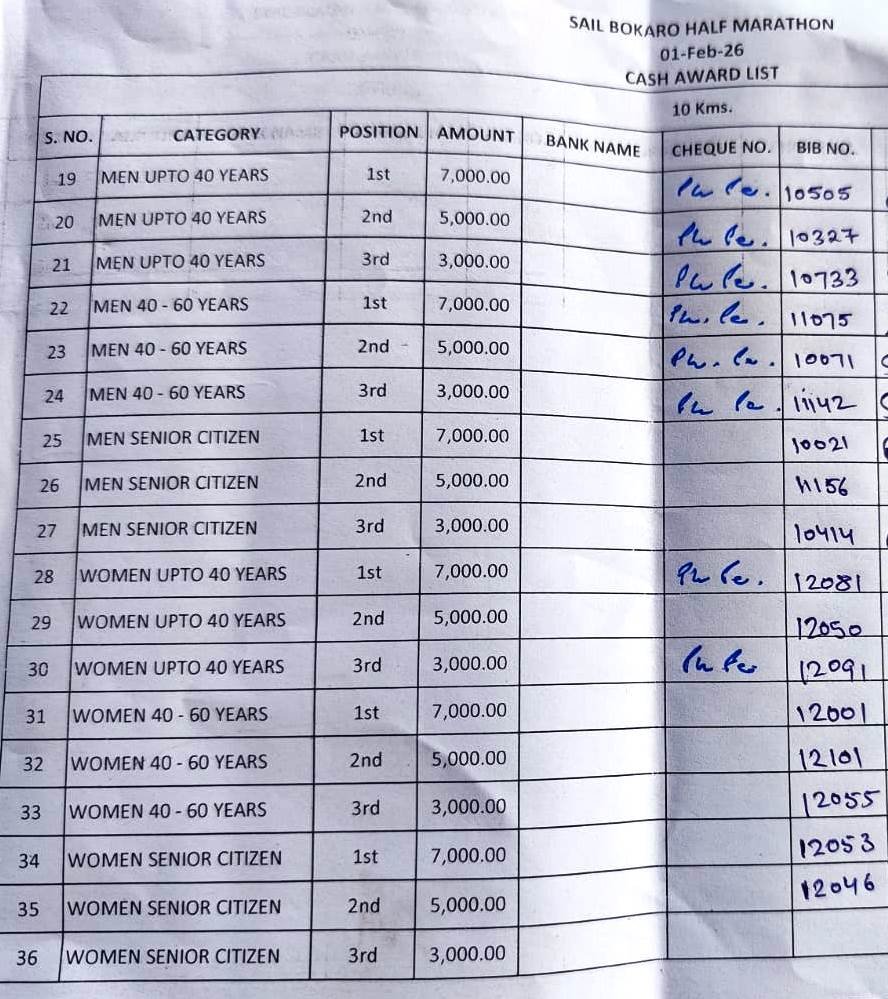 SAIL BOKARO HALF MARATHON
01-Feb-26
CASH AWARD LIST
10 Kms.
S. NO. CATEGORY POSITION AMOUNT BANK NAME CHEQUE NO. BIB NO.
19 MEN UPTO 40 YEARS 1st 7,000.00 10505
20 MEN UPTO 40 YEARS 2nd 5,000.00 10327
21 MEN UPTO 40 YEARS 3rd 3,000.00 10733
22 MEN 40 - 60 YEARS 1st 7,000.00 11075
23 MEN 40 - 60 YEARS 2nd 5,000.00 10071
24 MEN 40 - 60 YEARS 3rd 3,000.00 11142
25 MEN SENIOR CITIZEN 1st 7,000.00 10021
26 MEN SENIOR CITIZEN 2nd 5,000.00 11156
27 MEN SENIOR CITIZEN 3rd 3,000.00 10414
28 WOMEN UPTO 40 YEARS 1st 7,000.00 12081
29 WOMEN UPTO 40 YEARS 2nd 5,000.00 12050
30 WOMEN UPTO 40 YEARS 3rd 3,000.00 12091
31 WOMEN 40 - 60 YEARS 1st 7,000.00 12001
32 WOMEN 40 - 60 YEARS 2nd 5,000.00 12101
33 WOMEN 40 - 60 YEARS 3rd 3,000.00 12055
34 WOMEN SENIOR CITIZEN 1st 7,000.00 12053
35 WOMEN SENIOR CITIZEN 2nd 5,000.00 12046
36 WOMEN SENIOR CITIZEN 3rd 3,000.00